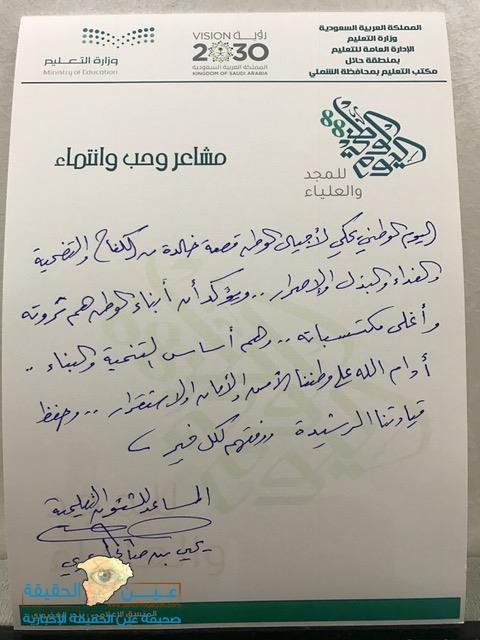 المملكة العربية السعودية
وزارة التعليم
الإدارة العامة للتعليم
بمنطقة حائل
مكتب التعليم بمحافظة الشملي
VISION رؤية
2030
المملكة العربية السعودية
KINGDOM OF SAUDI ARABIA
وزارة التعليم
Ministry of Education
اليوم الوطني 88
للمجد
والعلياء
مشاعر وحب وانتماء
اليوم الوطني يحكي لأجيال الوطن قصة خالدة من الكفاح والتضحية
والفداء والبذل والإصرار .. ويؤكد أن أبناء الوطن هم ثروته
وأغلى مكتسباته .. وهم أساس التنمية والبناء ..
أدام الله على وطننا الأمن والأمان والاستقرار .. وحفظ
قيادتنا الرشيدة ووفقهم لكل خير
المساعد للشئون التعليمية
يحيى بن
عين الحقيقة
صحيفة عين الحقيقة الإخبارية